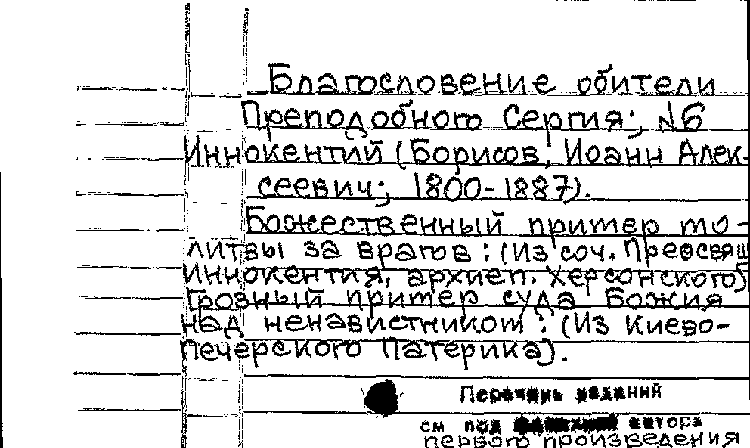 Благословение обители
Преподобного Сергия; №6
Иннокентий (Борисов, Иоанн Алек-
сеевич; 1800-1887).
Божественный пример мо-
литвы за врагов: (Из соч. Преосвящ
Иннокентия, архиеп. Херсонского)
Грозный пример суда Божия
над ненавистником: (Из Киево-
Печерского Патерика).
Перечень изданий
см под автора
первого произведения